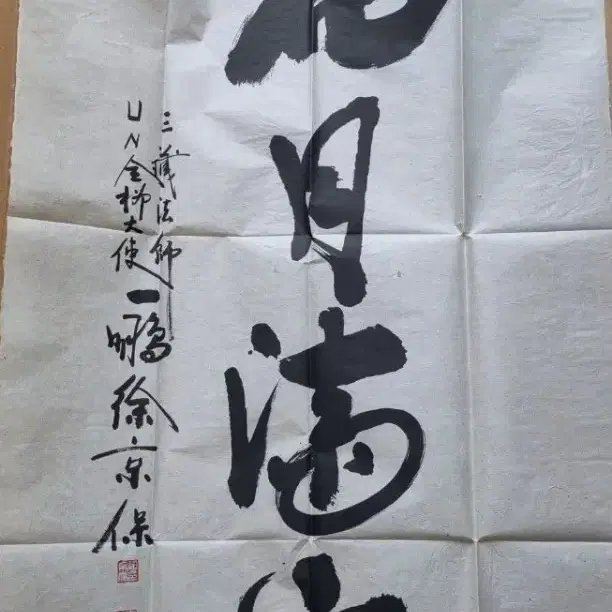 月滿
三藏法師
UN大使
一鵬徐京保